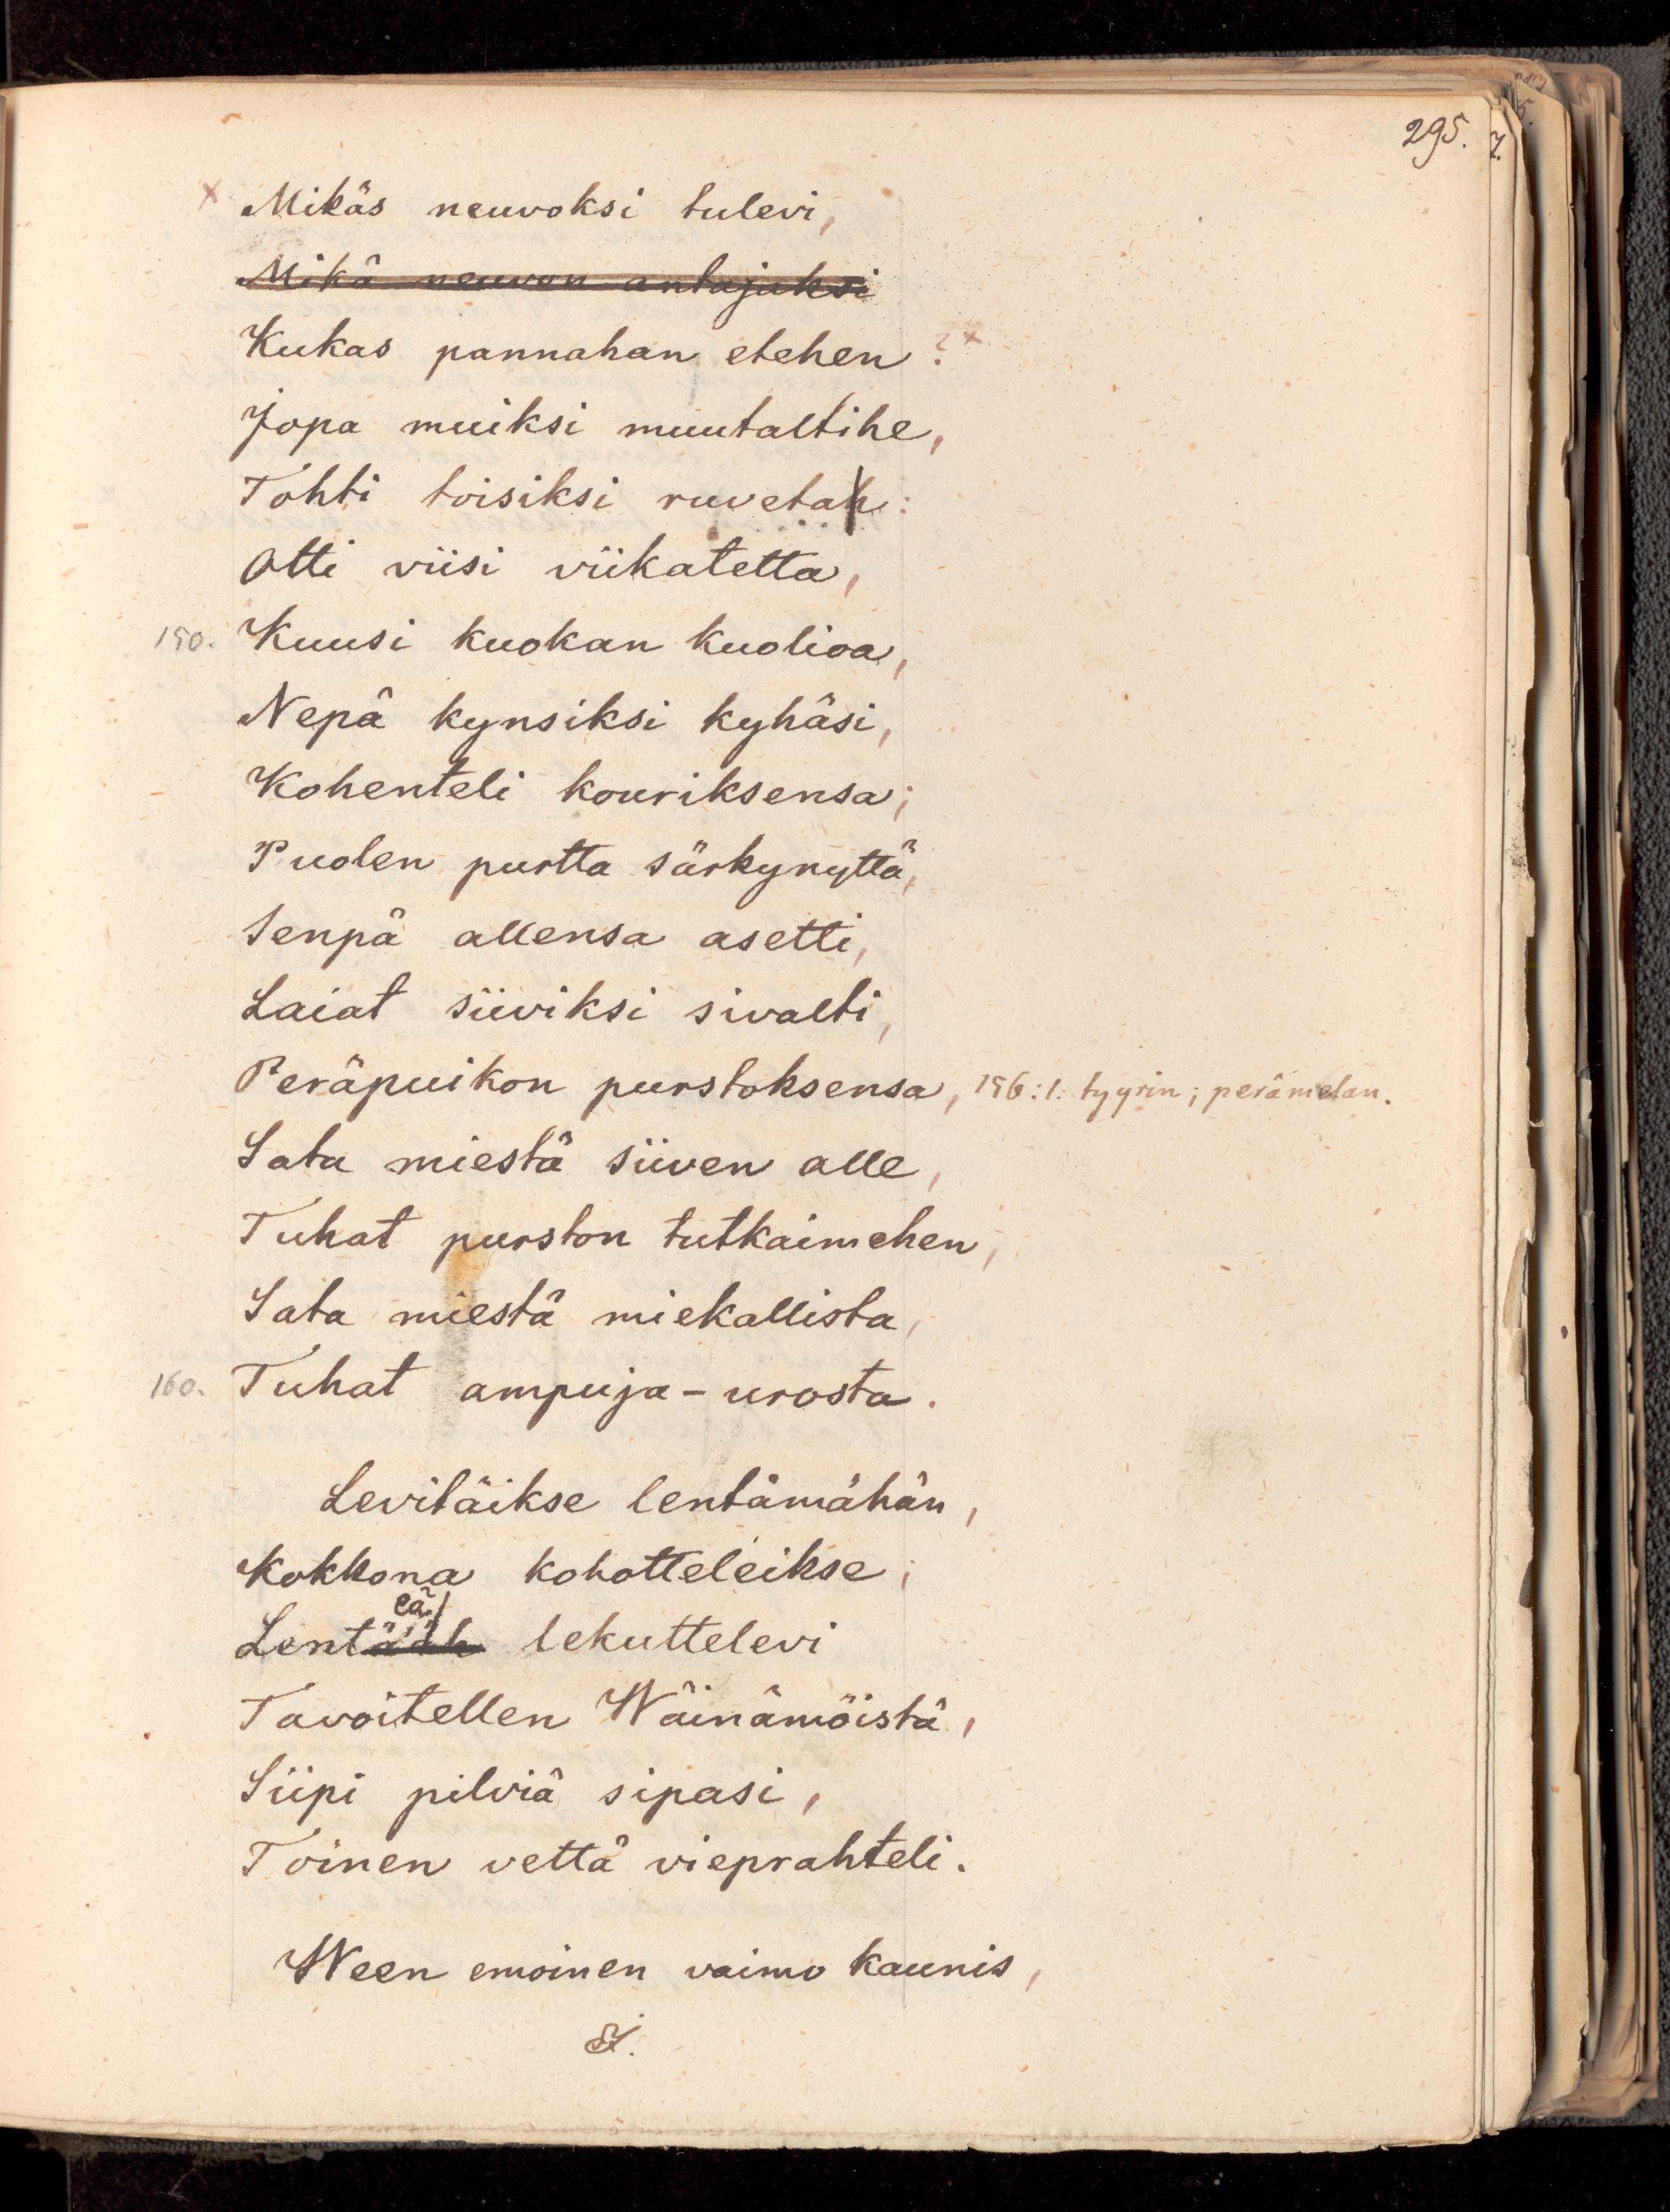 295. 7.
x Mikäs neuvoksi tulevi,
Mikä neuvon antajaksi
Kukas pannahan etehen ? x
Jopa muiksi muutaltihe,
Tohti toisiksi ruvetah:
Otti viisi viikatetta,
150. Kuusi kuokan kuolioa,
Nepä kynsiksi kyhäsi,
Kohenteli kouriksensa;
Puolen purtta särkynyttä,
Senpä allensa asetti,
Laiat siiviksi sivalti,
Peräpuikon purstoksensa, 156: l. tyyrin; perämelan.
Sata miestä siiven alle,
Tuhat purston tutkaimehen,
Sata miestä miekallista,
160. Tuhat ampuja-urosta.
Levitäikse lentämähän,
Kokkona kohotteleikse;
eä
Lentääh lekuttelevi
Tavoitellen Wäinämöistä,
Siipi pilviä sipasi,
Toinen vettä vieprahteli.
Ween emoinen vaimo kaunis,